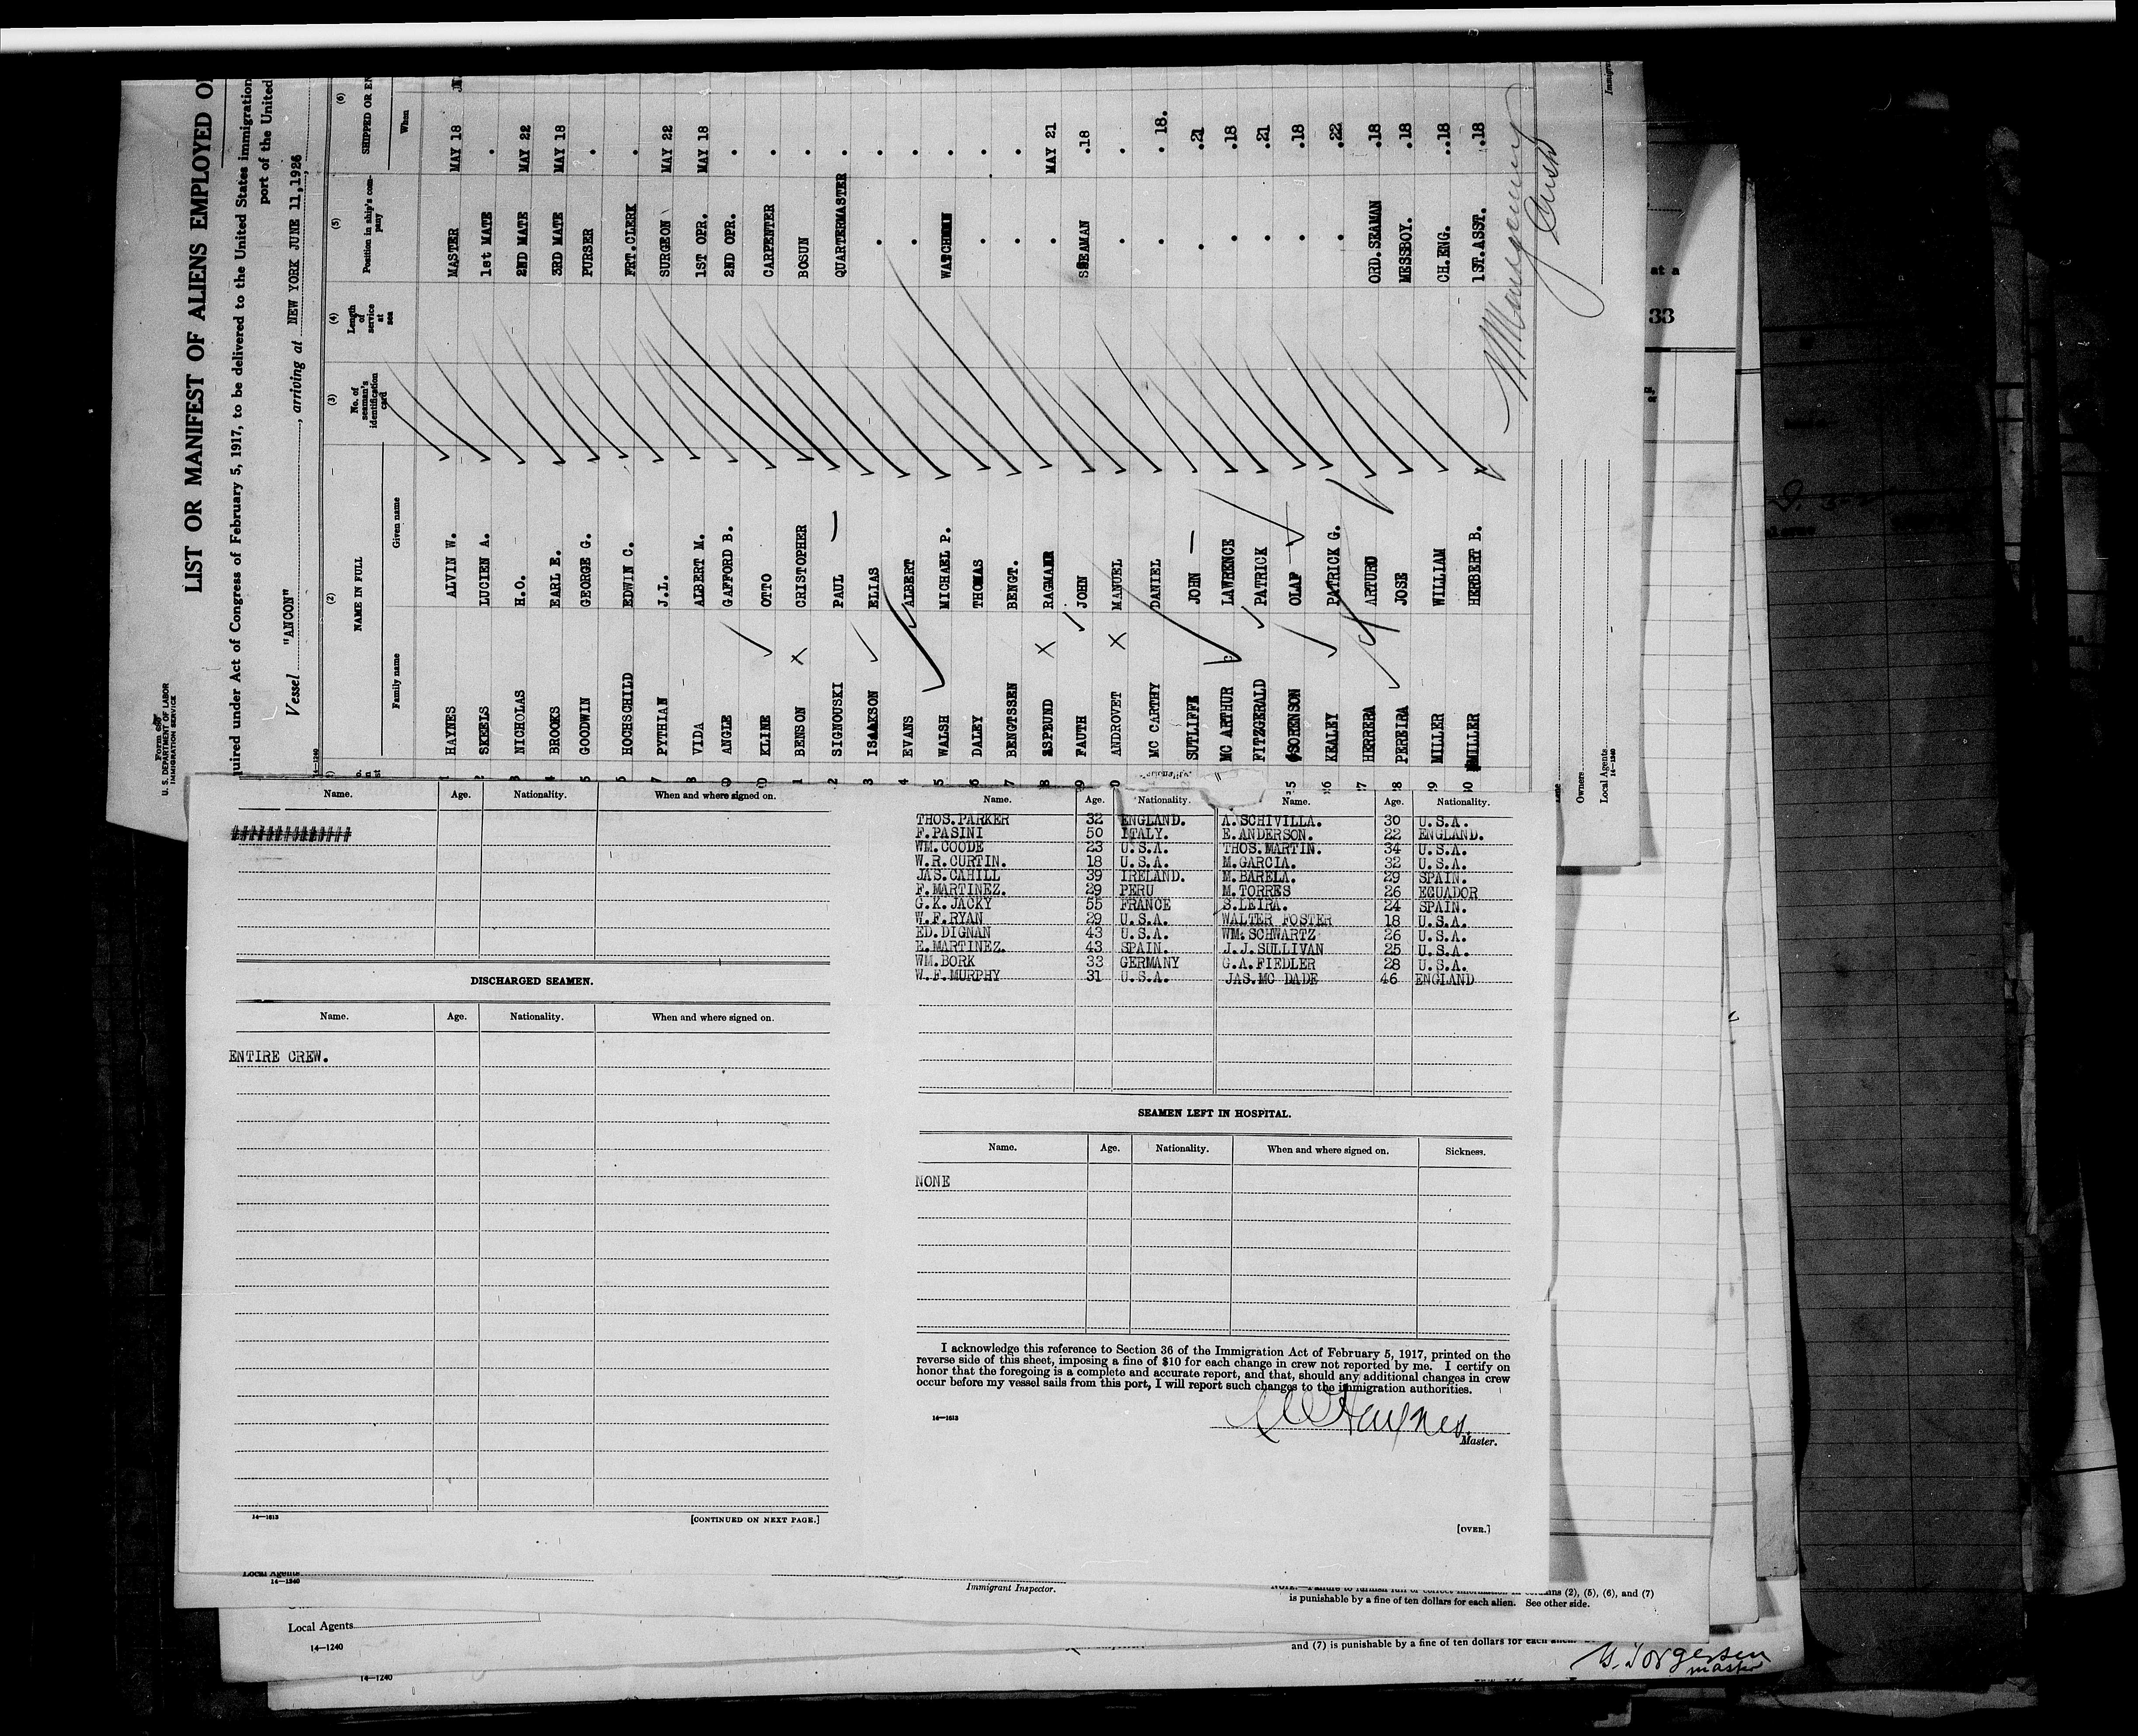 Form 689
U. S. DEPARTMENT OF LABOR
IMMIGRATION SERVICE
LIST OR MANIFEST OF ALIENS EMPLOYED O
quired under Act of Congress of February 5, 1917, to be delivered to the United States immigration
port of the United
Vessel "ANCON", arriving at NEW YORK JUNE 11, 1926
14—1240
(2) (3) (4) (5) (6)
NAME IN FULL No. of seaman's identification card Length of service at sea Position in ship's company SHIPPED OR EN
Family name Given name When
HAYNES ALVIN W. MASTER MAY 18
2 SKEELS LUCIEN A. 1st MATE .
3 NICHOLAS H.O. 2ND MATE MAY 22
4 BROOKS EARL E. 3RD MATE MAY 18
5 GOODWIN GEORGE G. PURSER .
6 HOCHSCHILD EDWIN C. FRT.CLERK .
7 PYTHIAN J.L. SURGEON MAY 22
8 VIDA ALBERT M. 1ST OPR. MAY 18
9 ANGLE GAFFORD B. 2ND OPR. .
0 KLINE OTTO CARPENTER .
1 BENSON CRISTOPHER BOSUN .
2 SIGNOUSKI PAUL — QUARTERMASTER .
3 ISAAKSON ELIAS . .
4 EVANS ALBERT . .
5 WALSH MICHAEL P. WATCHMAN .
6 DALEY THOMAS . .
7 BENGTSSEN BENGT. . .
8 ASPBUND RAGMAHR . MAY 21
9 FAUTH JOHN SEAMAN .18
0 ANDROVET MANUEL . .
MC CARTHY DANIEL . . 18.
SUTLIFFE JOHN — . .21
MC ARTHUR LAWRENCE . .18
FITZGERALD PATRICK . .21
25 SORENSON OLAF . .18
26 KEALEY PATRICK G. . .22
27 HERRERA ARTURO ORD.SEAMAN .18
28 PEREIRA JOSE MESSBOY. .18
29 MILLER WILLIAM CH.ENG. ..18
30 MILLER HERBERT B. 1ST.ASST. .18
Owners
Local Agents
14—1240
Name. Age. Nationality. When and where signed on.
DISCHARGED SEAMEN.
Name. Age. Nationality. When and where signed on.
ENTIRE CREW.
14—1813
[CONTINUED ON NEXT PAGE.]
Name. Age. Nationality. Name. Age. Nationality.
THOS.PARKER 32 ENGLAND. A.SCHIVILLA. 30 U.S.A.
F.PASINI 50 ITALY. E.ANDERSON. 22 ENGLAND.
WM.COODE 23 U.S.A. THOS.MARTIN. 34 U.S.A.
W.R.CURTIN. 18 U.S.A. M.GARCIA. 32 U.S.A.
JAS.CAHILL 39 IRELAND. M.BARELA. 29 SPAIN.
F.MARTINEZ. 29 PERU M.TORRES 26 ECUADOR
G.K.JACKY 55 FRANCE S.LEIRA. 24 SPAIN.
W.F.RYAN 29 U.S.A. WALTER FOSTER 18 U.S.A.
ED.DIGNAN 43 U.S.A. WM.SCHWARTZ 26 U.S.A.
E.MARTINEZ. 43 SPAIN. J.J.SULLIVAN 25 U.S.A.
WM.BORK 33 GERMANY G.A.FIEDLER 28 U.S.A.
W.F.MURPHY 31 U.S.A. JAS.MC DADE 46 ENGLAND
SEAMEN LEFT IN HOSPITAL.
Name. Age. Nationality. When and where signed on. Sickness.
NONE
I acknowledge this reference to Section 36 of the Immigration Act of February 5, 1917, printed on the
reverse side of this sheet, imposing a fine of $10 for each change in crew not reported by me. I certify on
honor that the foregoing is a complete and accurate report, and that, should any additional changes in crew
occur before my vessel sails from this port, I will report such changes to the immigration authorities.
14—1813
A W Haynes.
Master.
[OVER.]
at a
33
Local Agents
14—1240
Immigrant Inspector.
(2), (5), (6), and (7)
is punishable by a fine of ten dollars for each alien. See other side.
Local Agents
14—1240
and (7) is punishable by a fine of ten dollars for each alien.
14—1240
Jorgensen
master